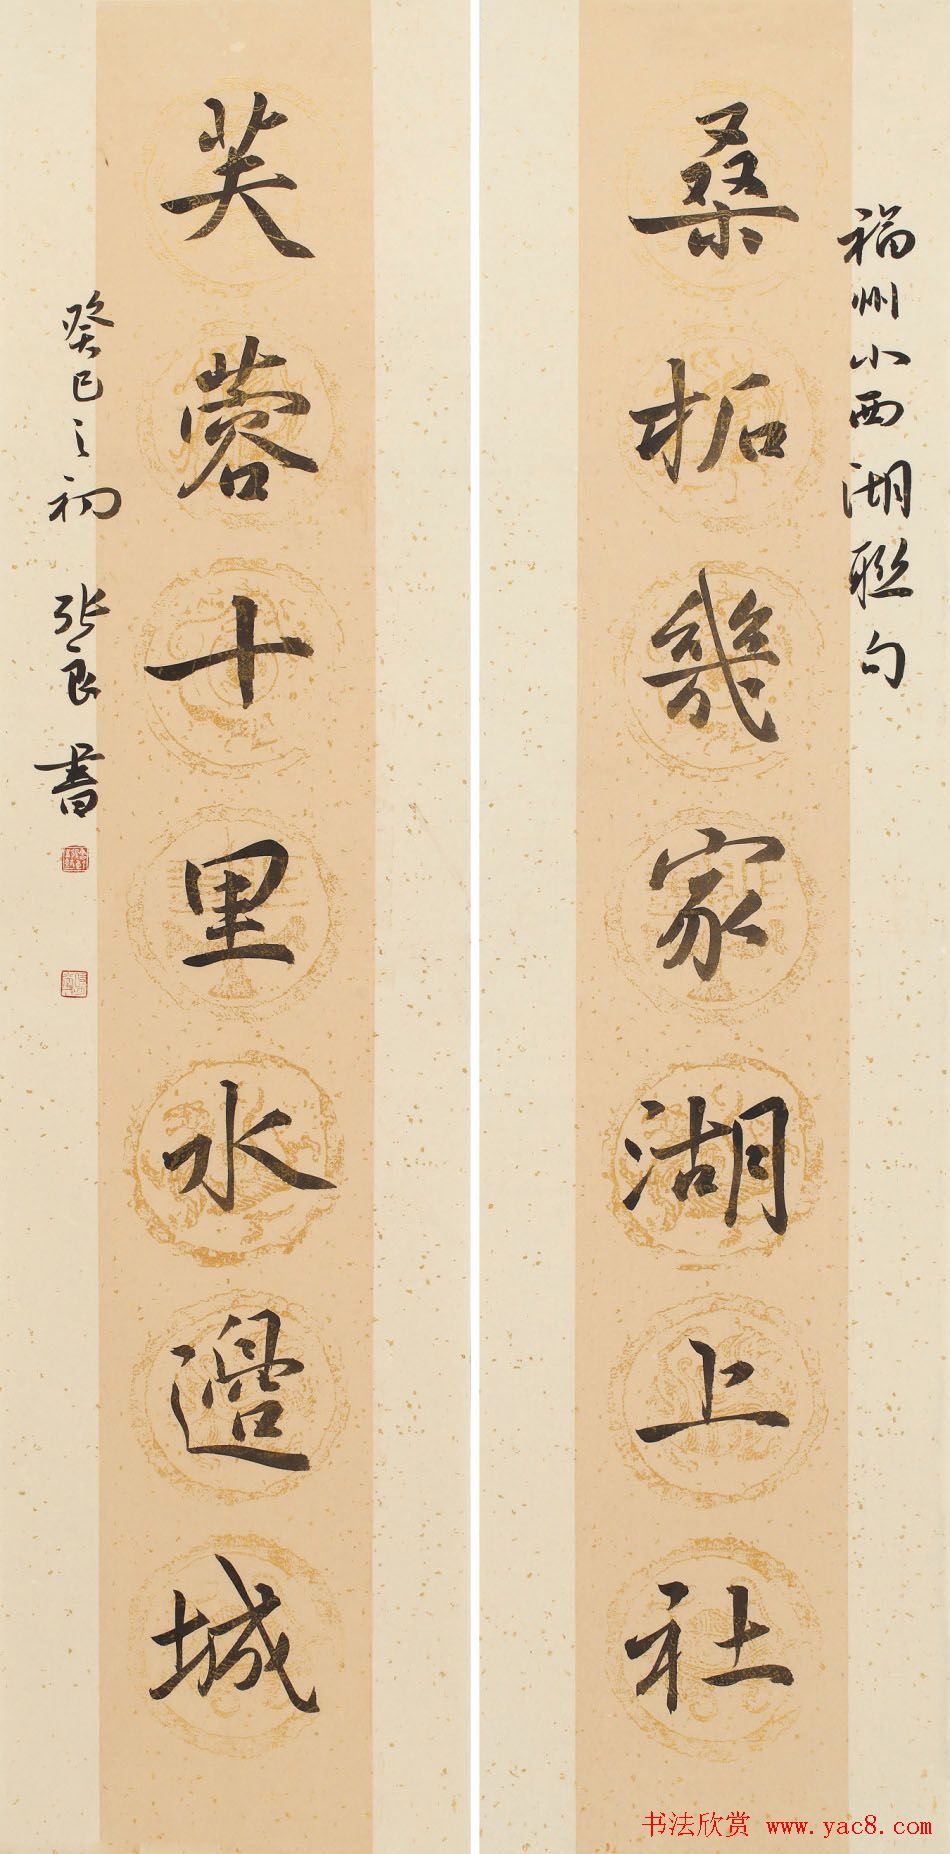 福州小西湖聯句
桑柘幾家湖上社
芙蓉十里水邊城
癸巳之初 張良 書
书法欣赏 www.yac8.com